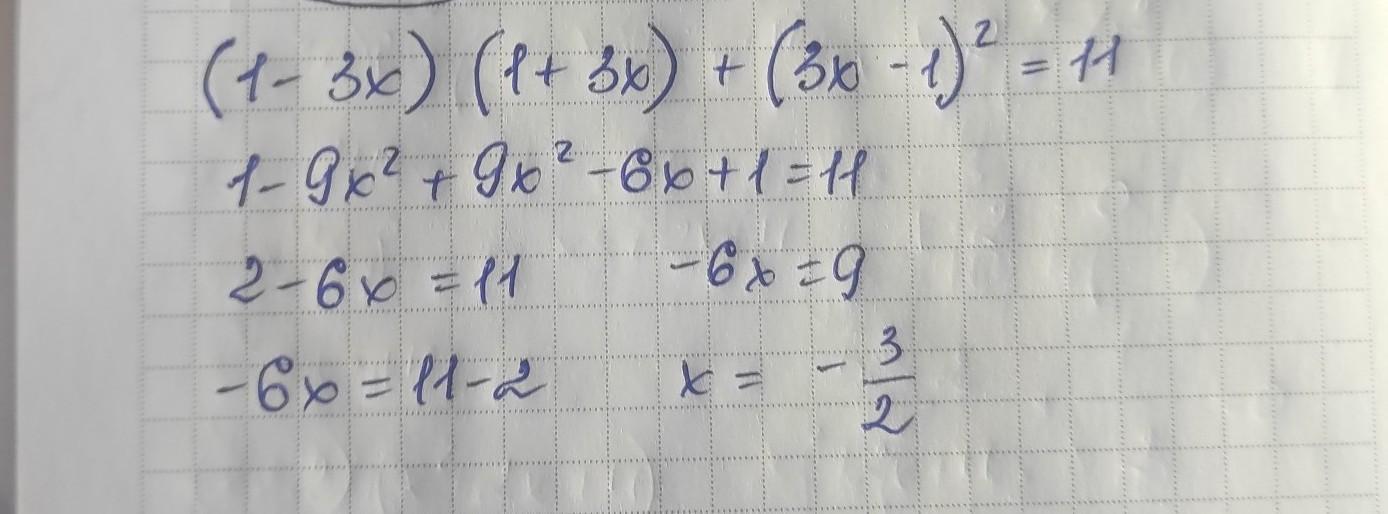 (1 - 3x) (1 + 3x) + (3x - 1)² = 11
1 - 9x² + 9x² - 6x + 1 = 11
2 - 6x = 11
-6x = 11 - 2
-6x = 9
x = - 3/2